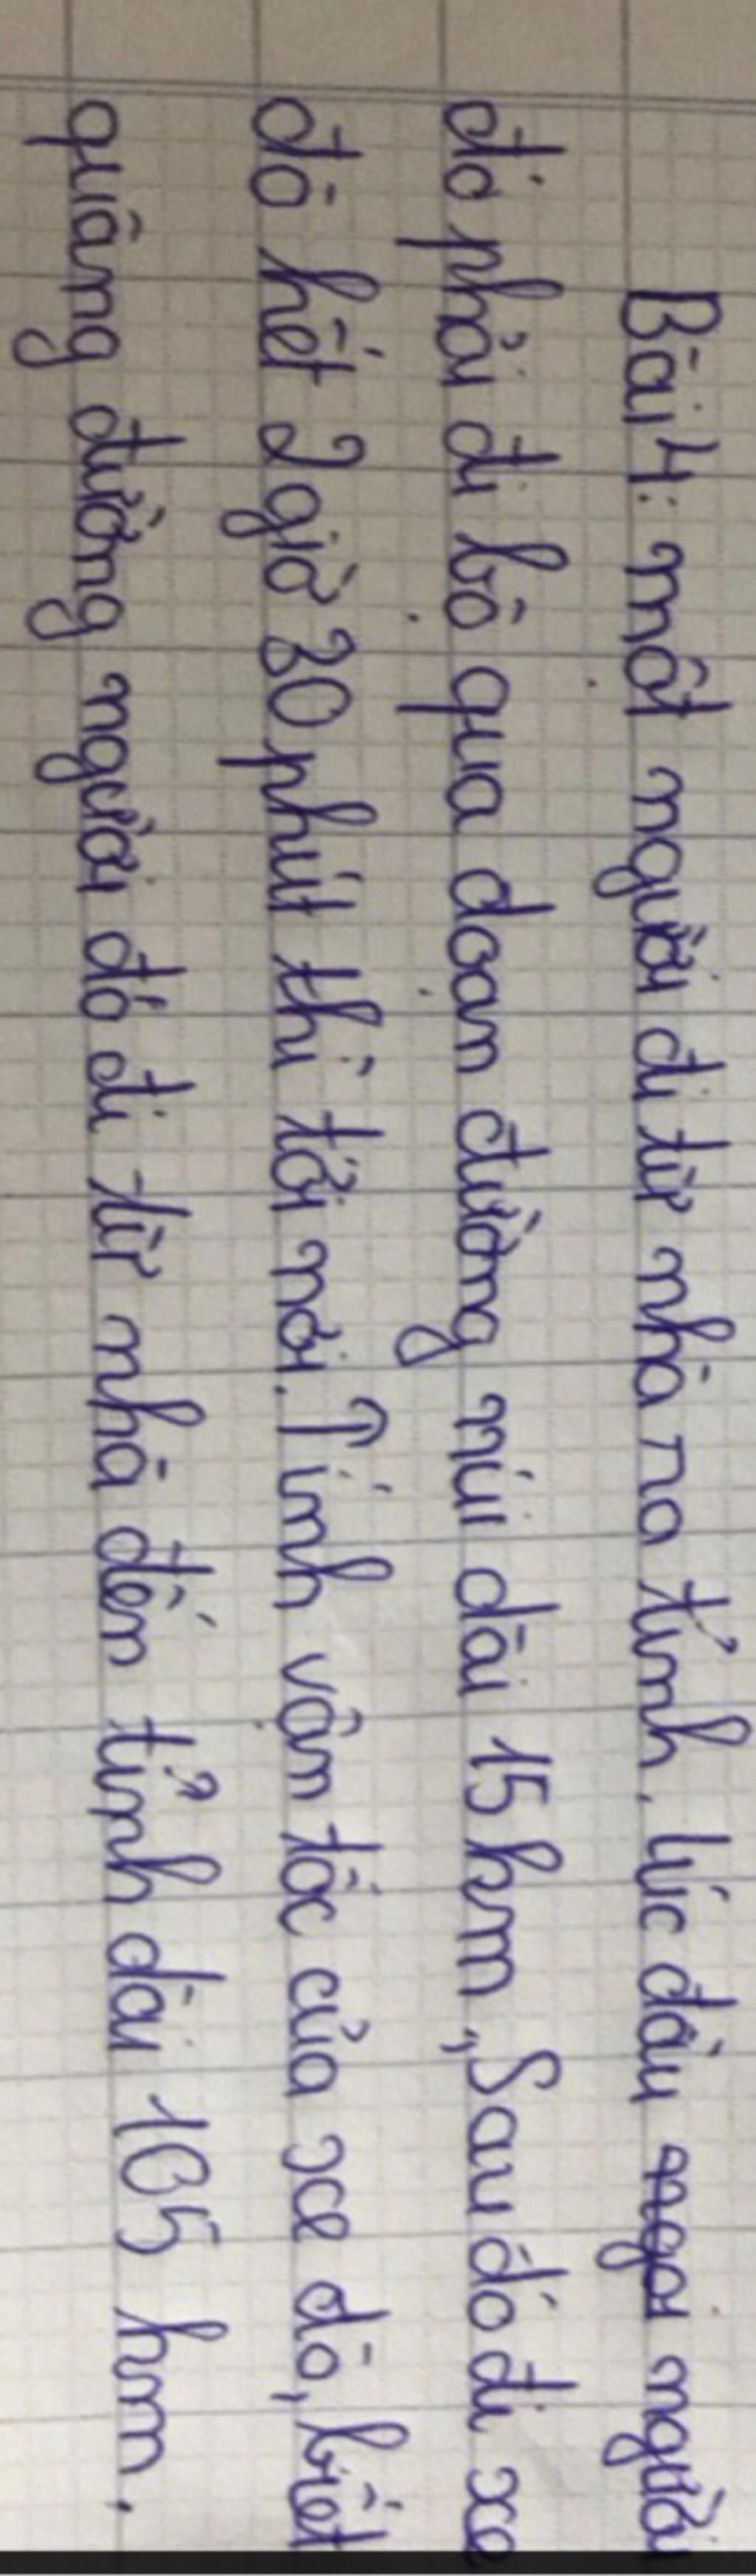 Bài 4: một người đi từ nhà ra tỉnh, lúc đầu người
đó phải đi bộ qua đoạn đường núi dài 15 km, Sau đó đi xe
đò hết 2 giờ 30 phút thì tới nơi. Tính vận tốc của xe đò, biết
quãng đường người đó đi từ nhà đến tỉnh dài 105 km.